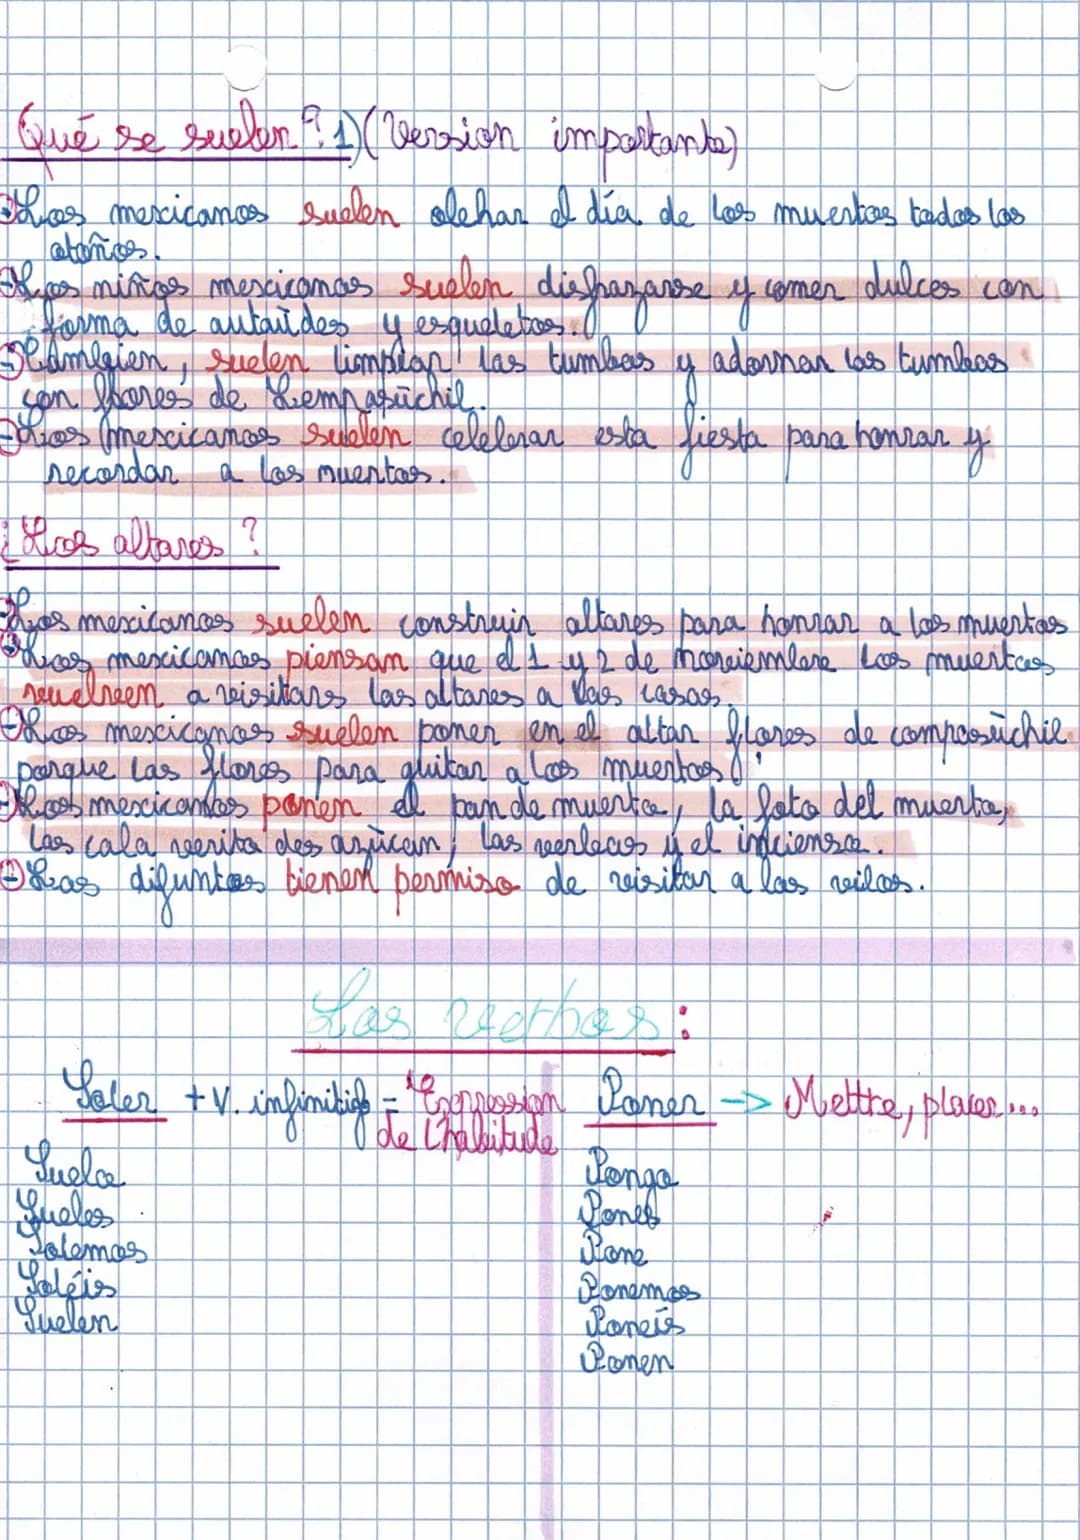 Qué se suelen ? 1) (Version importante)
Los mexicanos suelen el día de los muertos todos los
otoños.
Los niños mexicanos suelen disfrazarse y comer dulces con
forma de y esqueletos.
También, suelen limpiar las tumbas y adornar las tumbas
con flores de Zempasúchil.
Los mexicanos suelen celebrar esta fiesta para honrar y
recordar a los muertos.
¿Los altares ?
Los mexicanos suelen construir altares para honrar a los muertos
Los mexicanos piensan que el 1 y 2 de noviembre los muertos
vuelven a visitars las altares a las casas.
Los mexicanos suelen poner en el altar flores de compasúchil
porque las flores para guitar a los muertos.
Los mexicanos ponen el pan de muerto, la foto del muerto,
las cala verita des azùcar, las verlas y el incienso.
Los difuntos tienen permiso de visitar a los
Los verbos :
Soler + V. infinitif = "Expression
de l'habitude
Suelo
Sueles
Solemos
Soléis
Suelen
Poner -> Mettre, placer...
Pongo
Pones
Pone
Ponemos
Poneís
Ponen